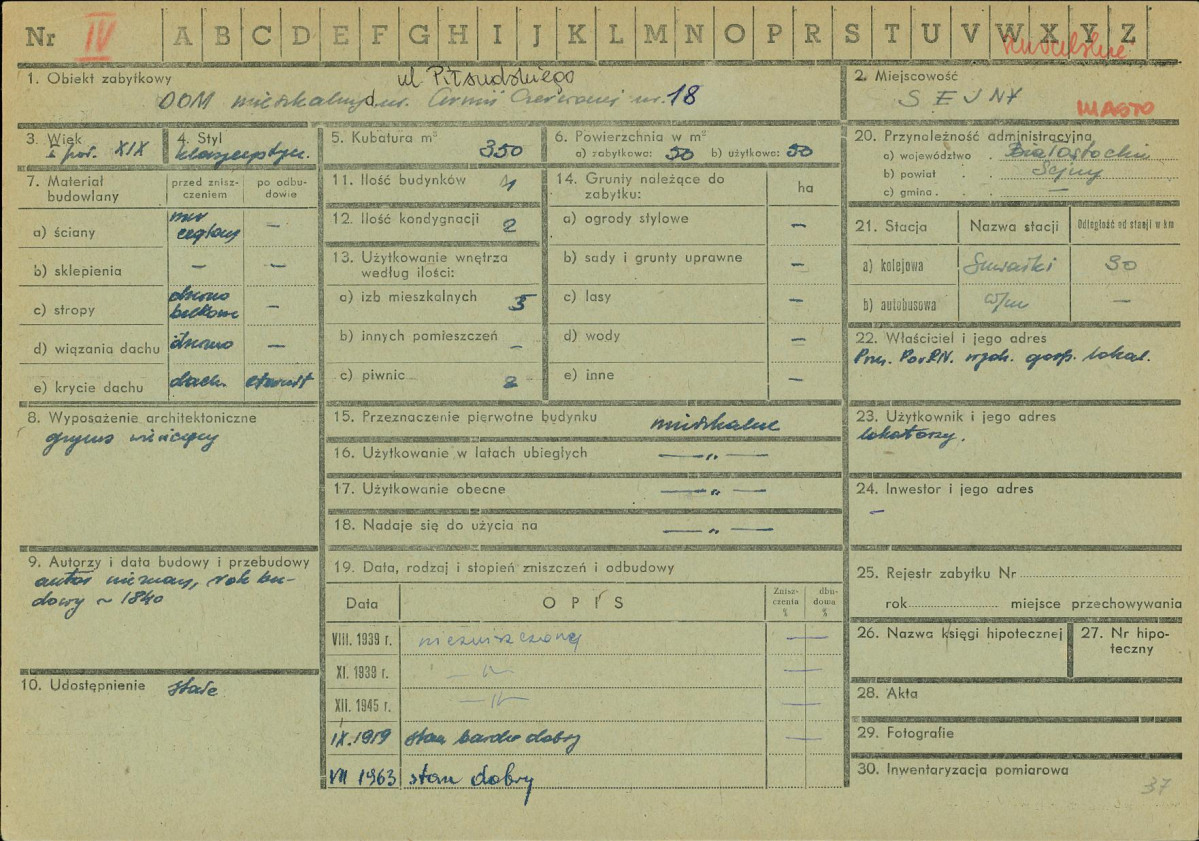 Nr IV A B C D E F G H I J K L M N O P R S T U V W X Y Z
1. Obiekt zabytkowy
ul. Piłsudskiego
DOM mieszkalny, ul. Armii Czerwonej nr. 18
2. Miejscowość
SEJNY
MIASTO
3. Wiek
I poł. XIX
4. Styl
klasycystycz.
5. Kubatura m³
350
6. Powierzchnia w m²
a) zabytkowa: 50 b) użytkowa: 50
7. Materiał budowlany
przed zniszczeniem
po odbudowie
a) ściany
mur ceglany
—
b) sklepienia — —
c) stropy
drewno belkowe
—
d) wiązania dachu drewno —
e) krycie dachu dach. eternit
8. Wyposażenie architektoniczne
gzyms wieńczący
9. Autorzy i data budowy i przebudowy
autor nieznany, rok bu-
dowy ~ 1840
10. Udostępnienie stałe
11. Ilość budynków 1
12. Ilość kondygnacji 2
13. Użytkowanie wnętrza
według ilości:
a) izb mieszkalnych 5
b) innych pomieszczeń —
c) piwnic 2
14. Grunty należące do
zabytku:
ha
a) ogrody stylowe —
b) sady i grunty uprawne —
c) lasy —
d) wody —
e) inne —
15. Przeznaczenie pierwotne budynku mieszkalne
16. Użytkowanie w latach ubiegłych —„—
17. Użytkowanie obecne —„—
18. Nadaje się do użycia na —„—
19. Data, rodzaj i stopień zniszczeń i odbudowy
Data OPIS Zniszczenia % dbudowa %
VIII. 1939 r. niezniszczony —
XI. 1939 r. —„— —
XII. 1945 r. —„— —
IX.1919 stan bardzo dobry —
VII 1963 stan dobry
20. Przynależność administracyjna
a) województwo Białostockie
b) powiat Sejny
c) gmina —
21. Stacja Nazwa stacji Odległość od stacji w km
a) kolejowa Suwałki 30
b) autobusowa w/m —
22. Właściciel i jego adres
Prez. Pow.RN. wydz. gosp. lokal.
23. Użytkownik i jego adres
lokatorzy.
24. Inwestor i jego adres
—
25. Rejestr zabytku Nr
rok miejsce przechowywania
26. Nazwa księgi hipotecznej
27. Nr hipo-
teczny
28. Akta
29. Fotografie
30. Inwentaryzacja pomiarowa
37